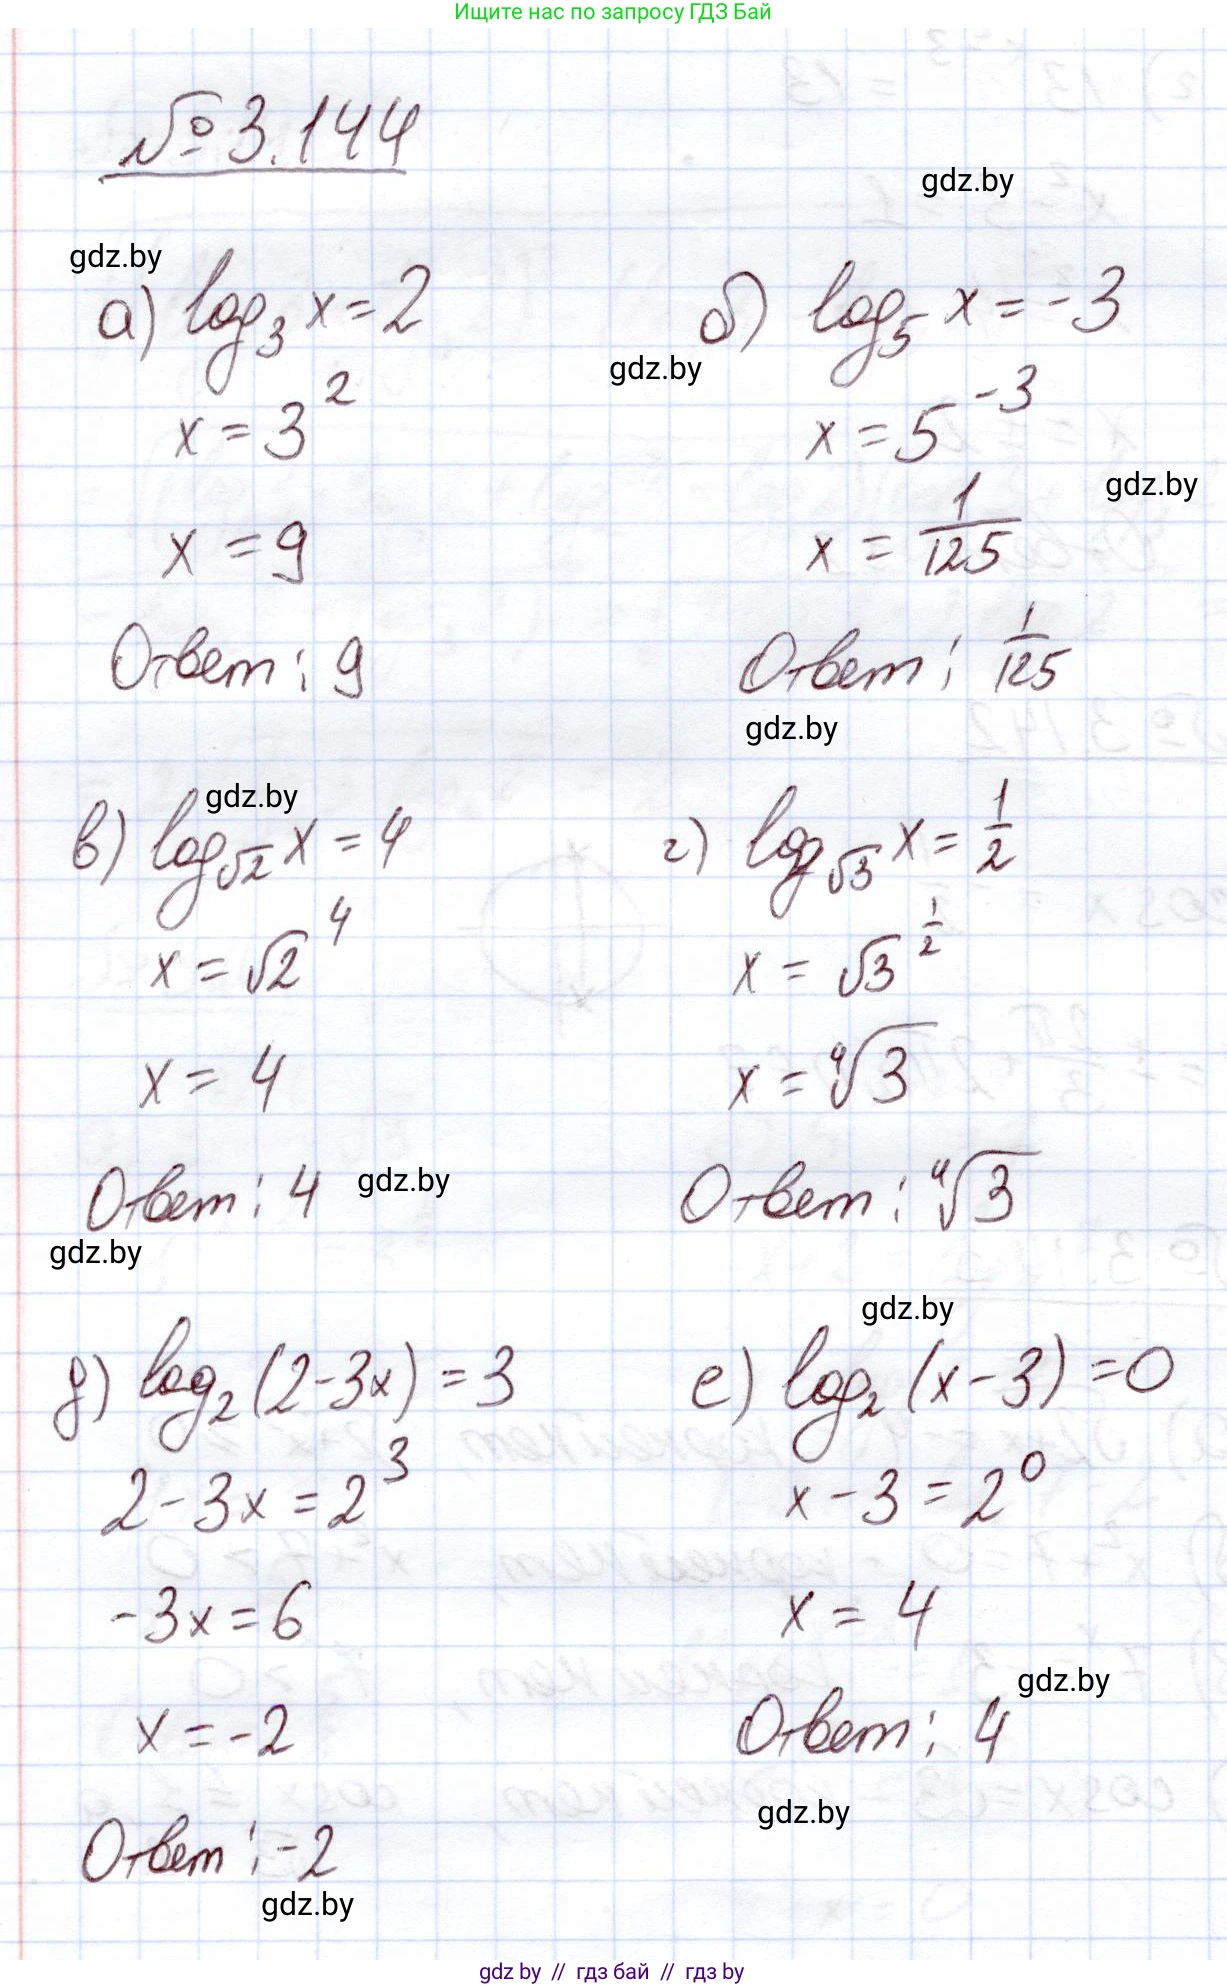 Ищите нас по запросу ГДЗ Бай
№3.144
gdz.by
gdz.by
а) log₃ x = 2
x = 3²
x = 9
Ответ: 9
б) log₅ x = -3
gdz.by
x = 5⁻³
gdz.by
x = 1/125
Ответ: 1/125
gdz.by
gdz.by
в) log_√2 x = 4
x = √2⁴
x = 4
Ответ: 4
gdz.by
gdz.by
г) log_√3 x = 1/2
x = √3^(1/2)
x = ⁴√3
Ответ: ⁴√3
gdz.by
д) log₂(2-3x) = 3
2-3x = 2³
-3x = 6
x = -2
Ответ: -2
gdz.by
е) log₂(x-3) = 0
x-3 = 2⁰
x = 4
gdz.by
Ответ: 4
gdz.by
gdz by // гдз бай // гдз by